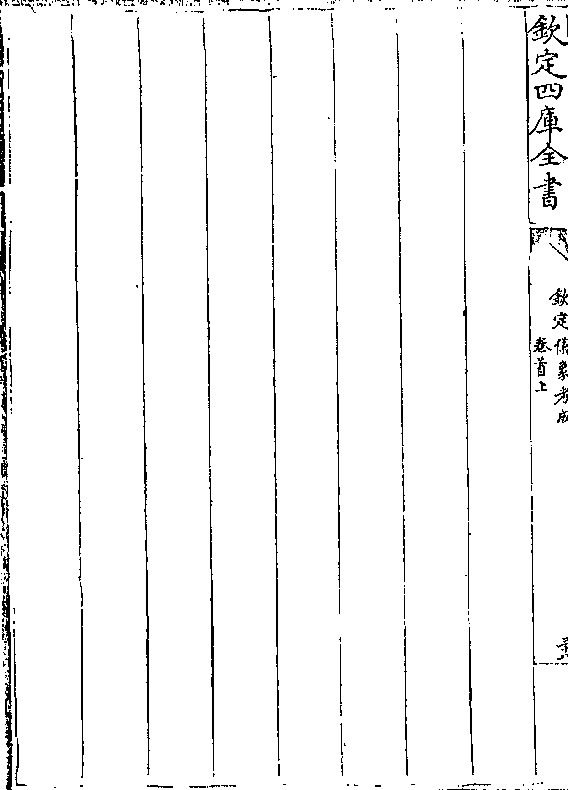 欽定四庫全書
欽定儀象考成
卷首上